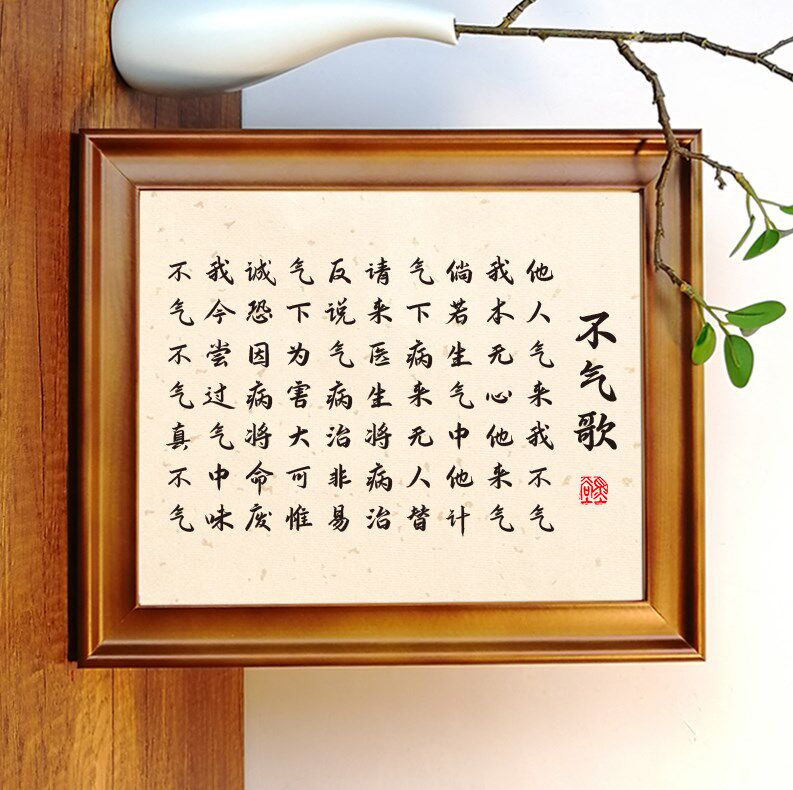 不气歌
他人气来我不气
我本无心他来气
倘若生气中他计
气下病来无人替
请来医生将病治
反说气病治非易
气下为害大可惟
诚恐因病将命废
我今尝过气中味
不气不气真不气